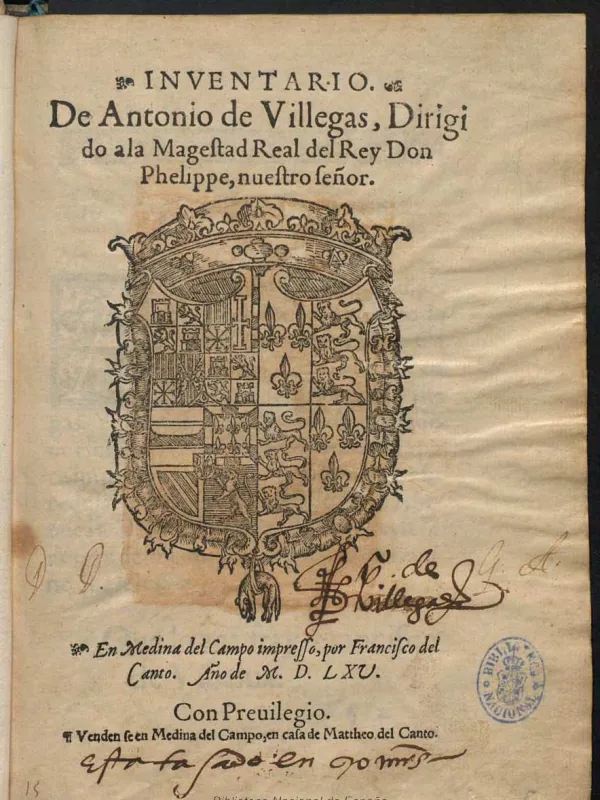 INVENTARIO.
De Antonio de Villegas, Dirigi
do a la Mageſtad Real del Rey Don
Phelippe, nueſtro ſeñor.
de
Villegas
En Medina del Campo impreſſo, por Franciſco del
Canto. Año de M. D. LXV.
BIBLIOTECA NACIONAL
Con Preuilegio.
¶ Venden ſe en Medina del Campo, en caſa de Mattheo del Canto.
Esta tasado en 90 mrs
15
Biblioteca Nacional de España